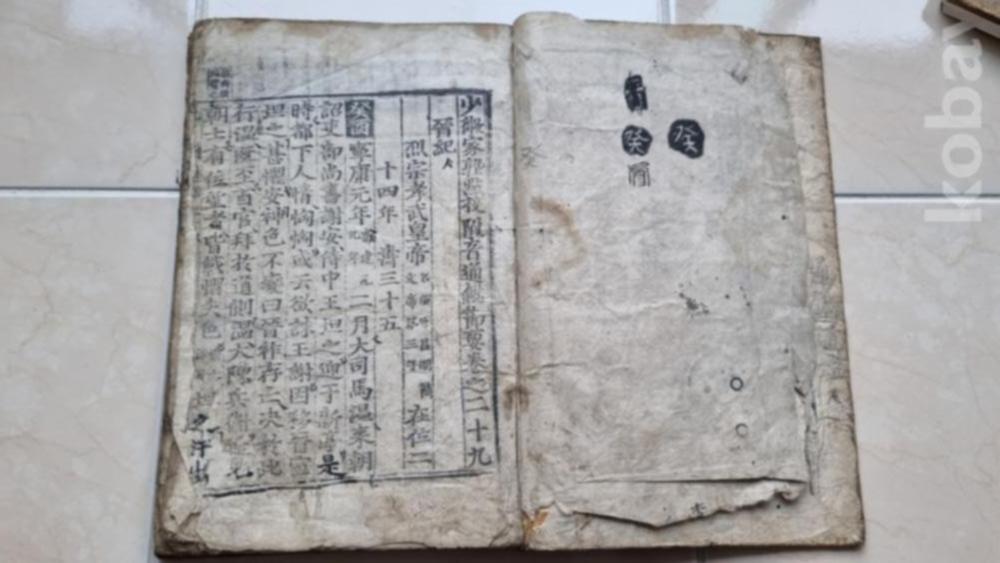 少微家塾點校附音通鑑節要卷之二十九
晉紀
烈宗孝武皇帝 在位二
十四年 壽三十五
癸酉 寧康元年 二月大司馬溫來朝
詔吏部尚書謝安侍中王坦之迎于新亭是
時都下人情恟恟或云欲誅王謝因移晉室
坦之甚懼安神色不變曰晉祚存亡決於此
行溫旣至百官拜於道側溫大陳兵衛延
朝士有位望者皆戰慴失色 坦之汗出
癸
癸
kobay